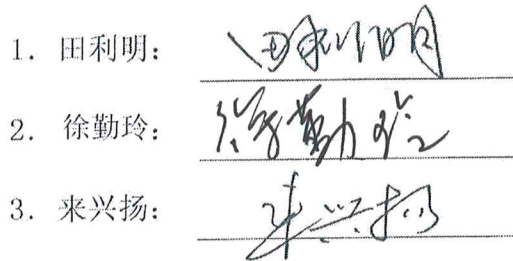 1. 田利明： 田利明
2. 徐勤玲： 徐勤玲
3. 来兴扬： 来兴扬